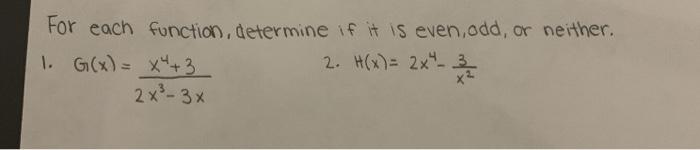 For each function, determine if it is even, odd, or neither.
1. G(x) = x⁴+3 / 2x³-3x 2. H(x) = 2x⁴ - 3/x²